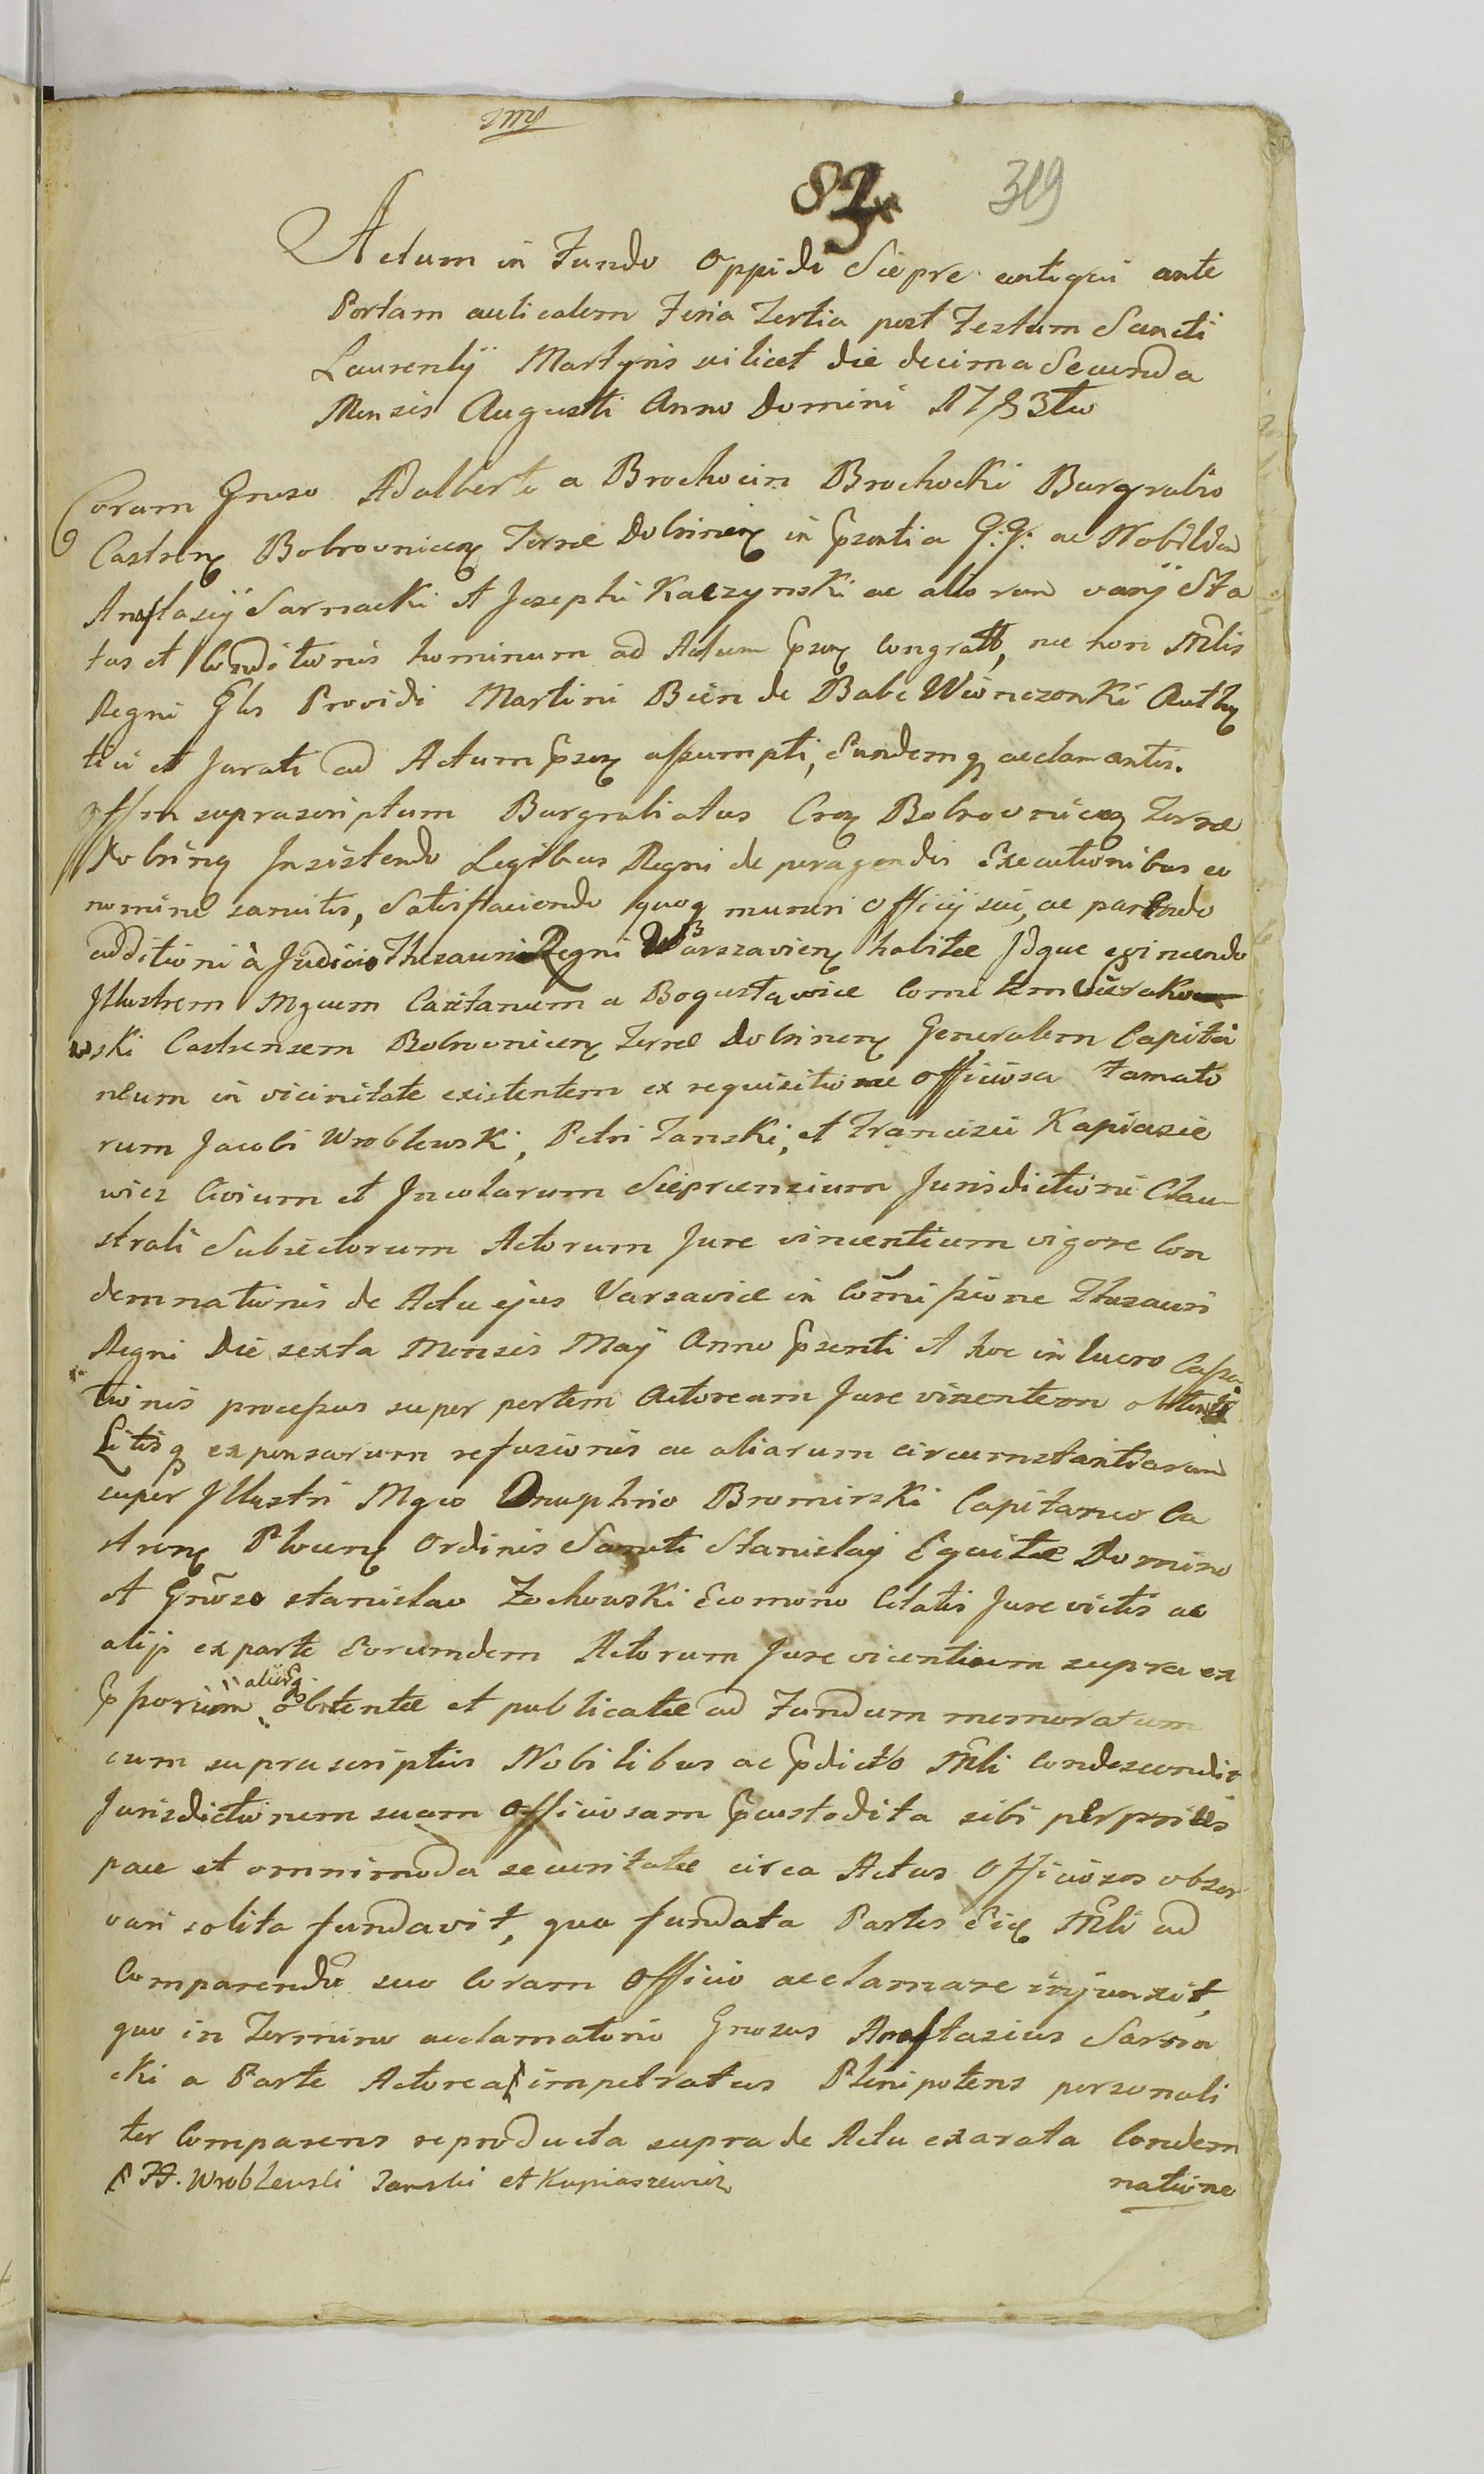 82
319
Actum in Fundo Oppidi Siepre antiqui ante
Portam auticalem Feria Tertia post Festum Sancti
Laurentij Martyris scilicet die decima Secunda
Mensis Augusti Anno Domini 1783tio
Coram Gnoso Adalberto a Brochocin Brochocki Burgrabio
Castren Bobrovnicen Terræ Dobrinen in Pszentia G:G: ac Nobilium
Anastasij Sarnacki et Josephi Kaczynski ac aliorum varij Sta
tus et Conditionis hominum ad Actum Pszen Congratt, nec non Mlis
Regni Glis Providi Martini Bien de Babc Wionczonki Authen
tici et Jurati ad Actum Pszen assumpti, Eundemq acclamantis.
Offm suprascriptum Burgrabiatus Cren Bobrovnicen Terræ
Dobrinen Insistendo Legibus Regni de peragendis Executionibus eo
nomine sancitis, Satisfaciendo quoq muneri Officij sui, ac parendo
additioni à Judicio Thesauri Regni Warszavien habitæ Idque evincendo
Illustrem Mgcum Caietanum a Bogusławice Comitem Sierako
wski Castrensem Bobrovnicen Terræ Dobrinen Generalem Capita
neum in vicinitate existentem ex requisitione officiosa Famato
rum Jacobi Wroblewski, Petri Janski, et Francisci Kapiasie
wicz Civium et Incolarum Sieprcensium Jurisdictioni Clau-
strali Subiectorum Actorum Jure vincentium vigore Con
demnationis de Actu ejus Varsaviæ in Commissione Thesauri
Regni Die sexta Mensis Maij Anno Pszenti et hoc in lucro Cassa
tionis processus super partem Actoream Jure vincentem obtent
Litisq expensarum refusionis ac aliarum circumstantiarum
super Illustri Mgco Onuphrio Bromirski Capitaneo Ca
stren Plocen Ordinis Sancti Stanislaj Equite Domino
et Gnoso Stanislao Zochowski Economo Citatis Jure victis ac
alijs ex parte Eorumdem Actorum Jure vicentium supra ex
pssorum aliisq obtentæ et publicatæ ad Fundum memoratum
cum suprascriptis Nobilibus ac Pdicto Mli condescendit
Jurisdictionem suam Officiosam Pcustodita sibi per prius
pace et omnimoda securitate circa Actus Officiosos obser
vari solita fundavit, qua fundata Partes Eid Mli ad
Comparendu suo Coram Officio acclamare injunxit,
quo in Termino acclamatorio Gnosus Anastasius Sarna
cki a Parte Actorea impetratus Plenipotens personali
ter Comparens reproducta supra de Actu exarata Condem
FF. Wroblewski Janski et Kupiaszewicz
natione